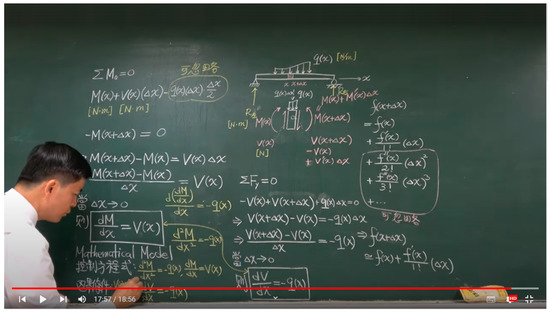 ΣM₀=0
M(x)+V(x)(Δx)-q(x)(Δx)Δx/2
[N·m] [N·m]
-M(x+Δx) = 0
M(x+Δx)-M(x)=V(x)Δx
M(x+Δx)-M(x)/Δx = V(x)
當 Δx→0
則 dM/dx = V(x)
d(dM/dx)/dx = -q(x)
d²M/dx² = -q(x)
Mathematical Model
控制方程式: d²M/dx² = -q(x), dM/dx = V(x)
dV/dx = -q(x)
q(x) [N/m]
x
x x+Δx
q(x)
M(x)+M'(x)Δx
M(x)
M(x+Δx)
[N·m]
V(x)
[N]
V(x+Δx)
ΣFy=0
-V(x)+V(x+Δx)+q(x)Δx=0
⇒ V(x+Δx)-V(x)=-q(x)Δx
⇒ V(x+Δx)-V(x)/Δx = -q(x)
當 Δx→0
則 dV/dx = -q(x)
f(x+Δx)
= f(x)
+ f'(x)/1! (Δx)
+ f''(x)/2! (Δx)²
+ f'''(x)/3! (Δx)³
+ ...
⇒ f(x+Δx)
≅ f(x) + f'(x)/1! (Δx)
17:57 / 18:56